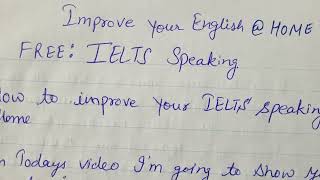 Improve Your English @ HOME
FREE: IELTS Speaking
How to improve Your IELTS speaking
Home
In Todays video I'm going to show